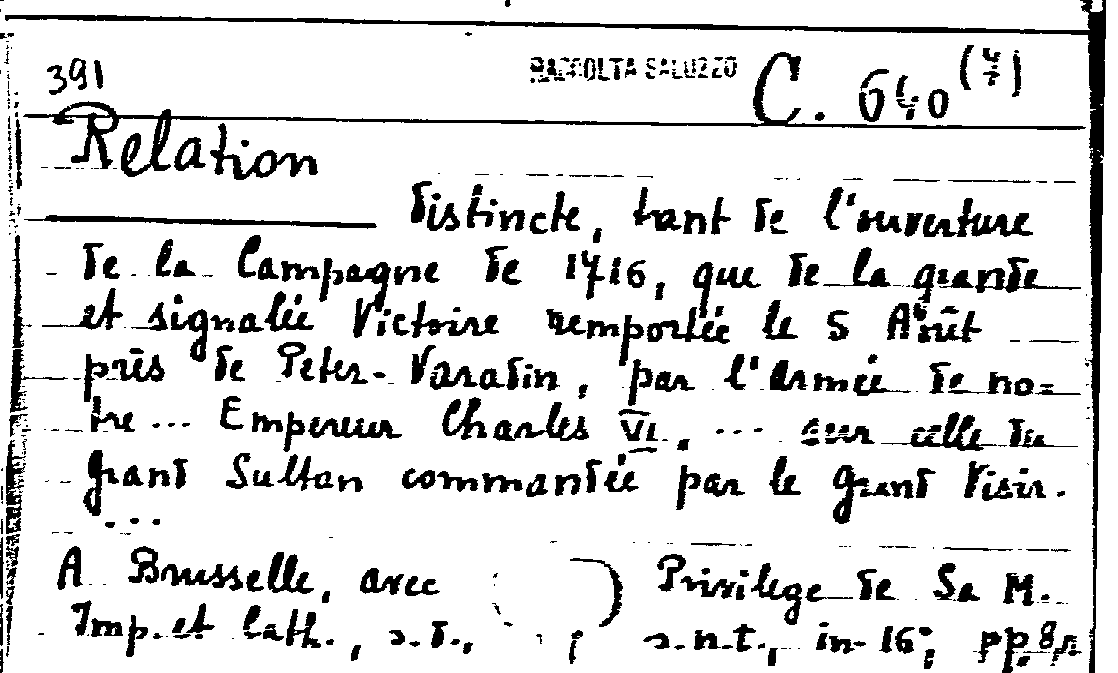 391 RACCOLTA SALUZZO C. 640 (4/7)
Relation
distincte, tant de l'ouverture
de la Campagne de 1716, que de la grande
et signalée Victoire remportée le 5 Août
près de Peter-Varadin, par l'Armée de no=
tre ... Empereur Charles VI, ... sur celle du
grand Sultan commandée par le grand Visir.
...
A Brusselle, avec ( ) Privilege de Sa M.
Imp. et Cath., s.d., ; s.n.t., in-16°; pp. 8,